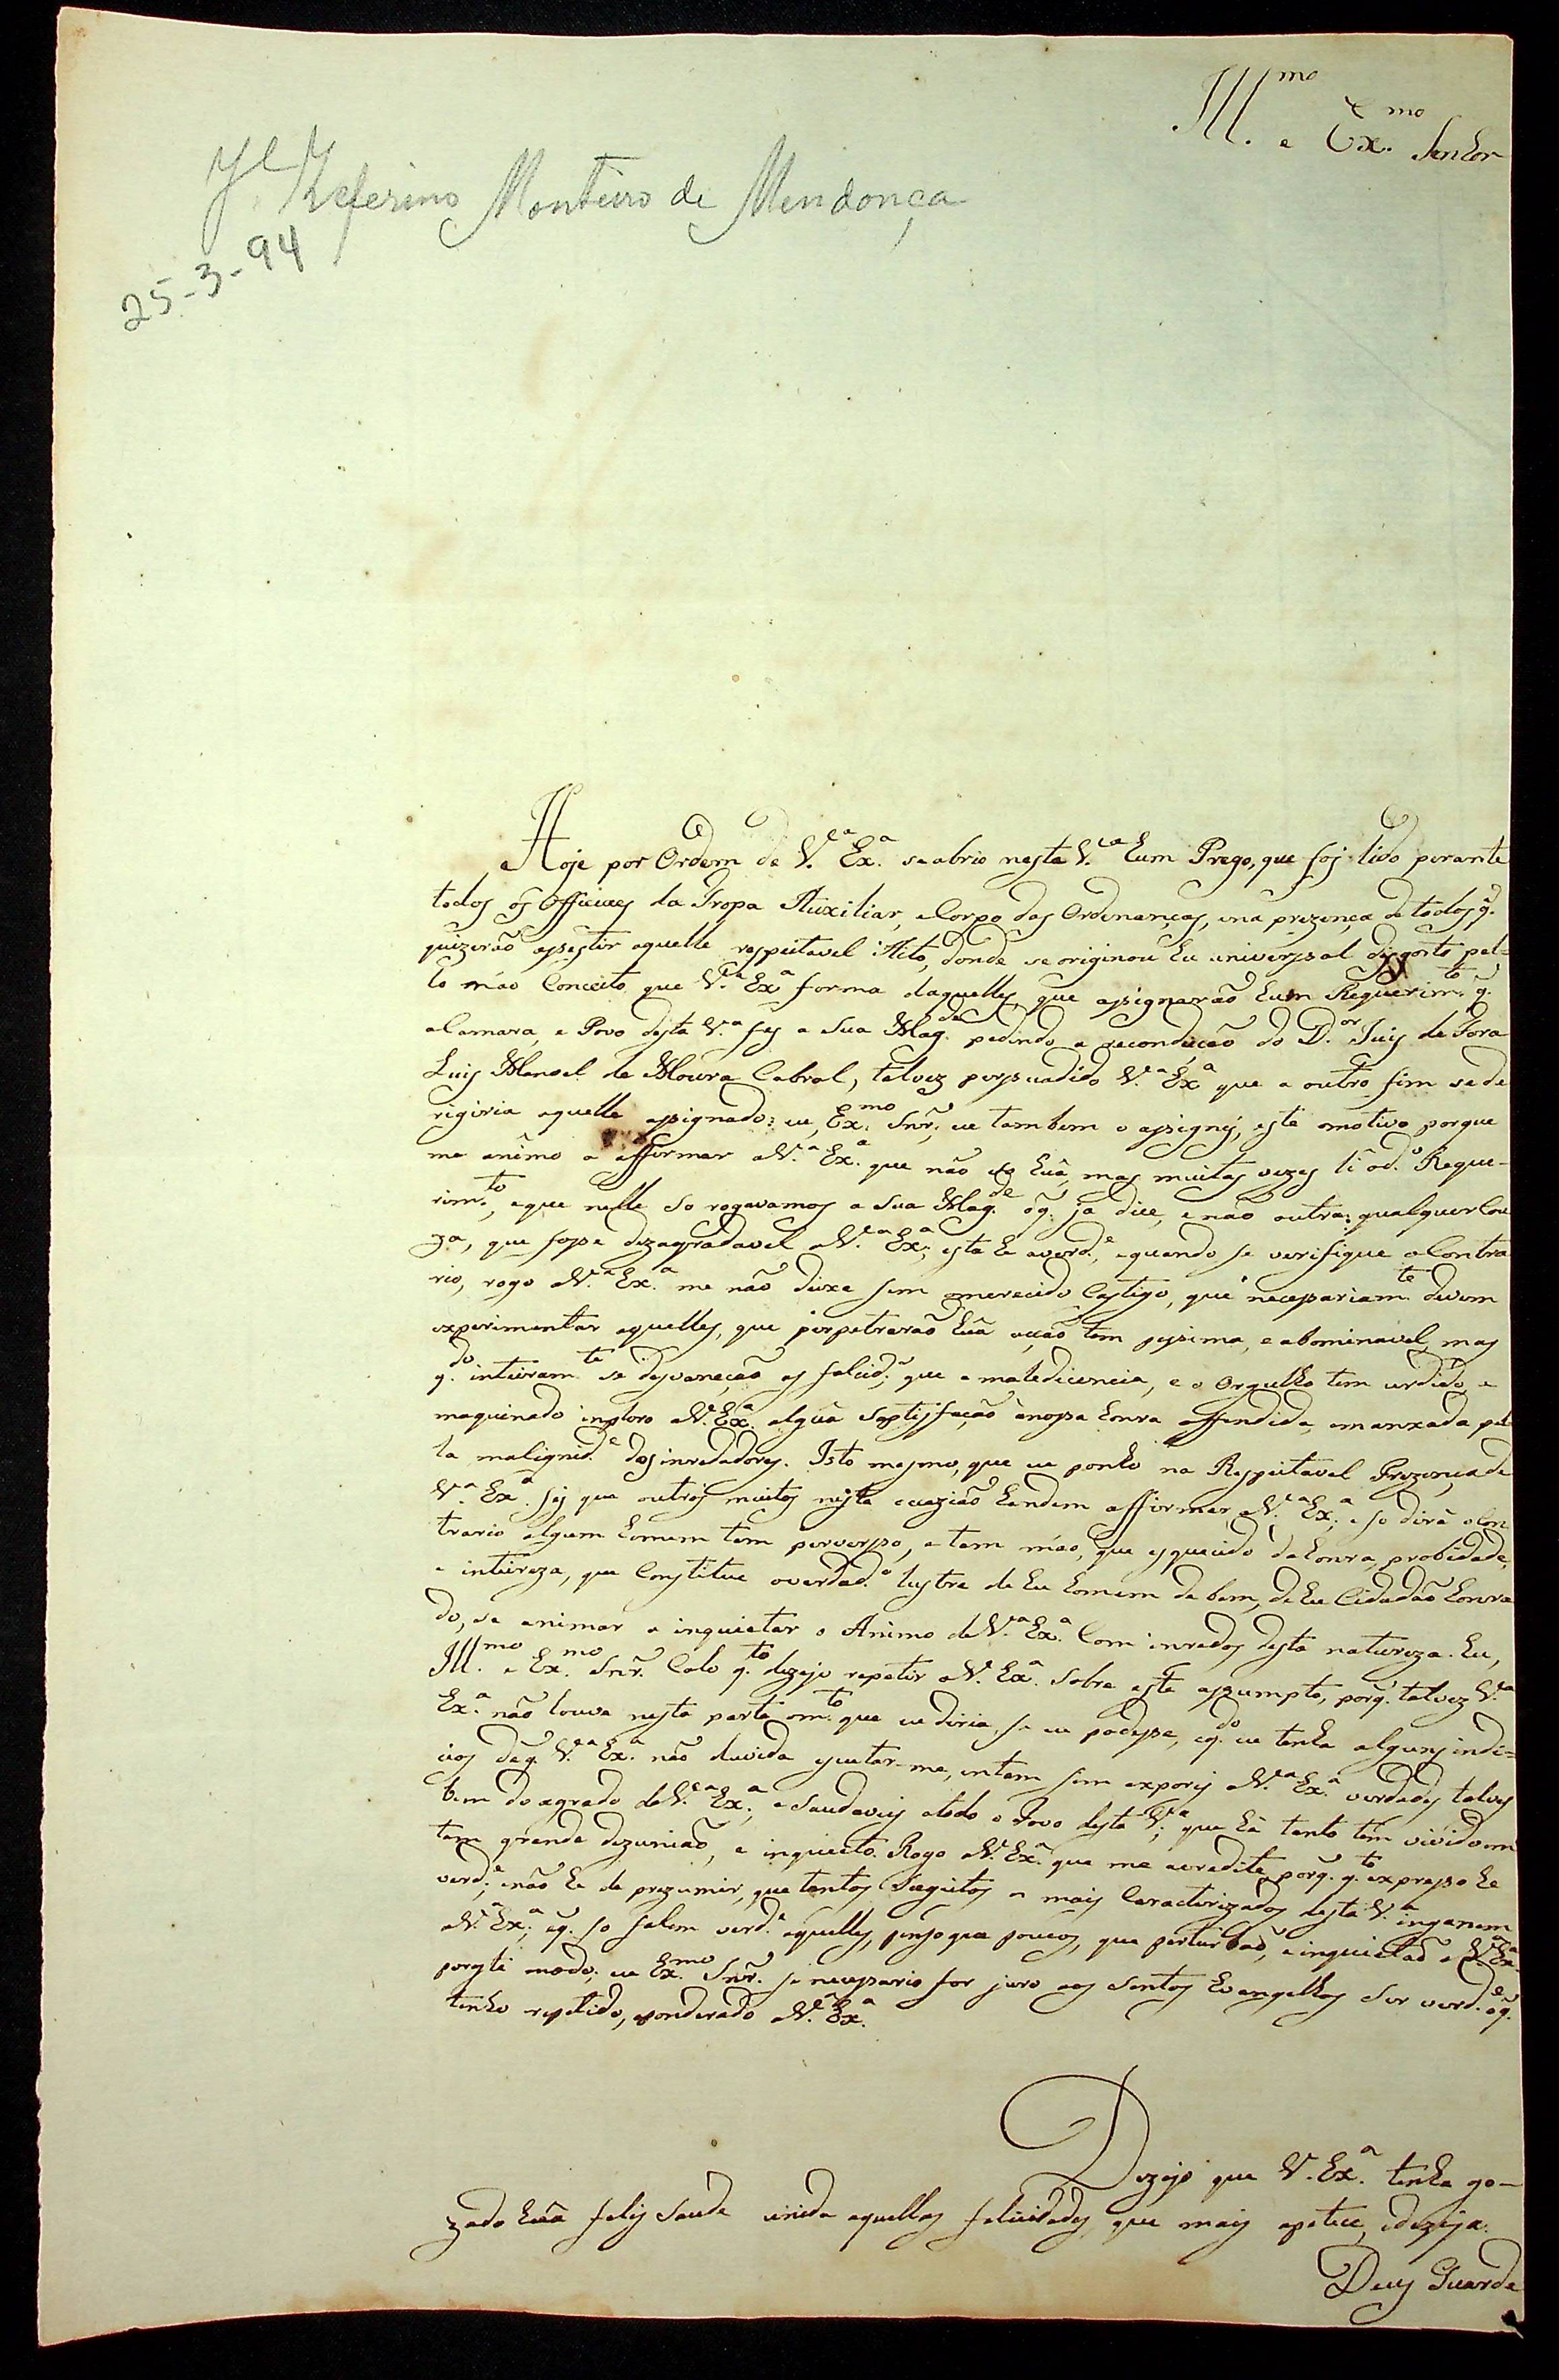 Ill.mo e Ex.mo Senhor
Zeferino Monteiro de Mendonça
25-3-94
Hoje por Ordem de V.ª Ex.ª se abrio nesta V.ª hum Prego, que foj lido perante
todos os Officiaes da Tropa Auxiliar, e Corpo das Ordenanças, e na prezença de todos q.
quizerão assestir aquelle respeitavel Acto, donde se originou hu universal disgosto pel-
lo máo Conceito que V.ª Ex.ª forma daquelles, que assignarão hum Requerim.to q.
a Camara, e Povo desta V.ª fes a Sua Mag.de pedindo a recondução do D.or Juis de Fora
Luis Manoel de Moura Cabral, talvez persuadido V.ª Ex.ª que a outro fim se de
rigiria aquelle assignado: eu, Ex.mo Snr., eu tambem o assignej, este o motivo porque
me animo a affirmar a V.ª Ex.ª que não so huã, mas muitas vezes li o d.º Reque-
rim.to, e que nelle so rogavamos a Sua Mag.de o q. ja dice, e não outra qualquer Cou
za, que fosse dezagradavel a V.ª Ex.ª; esta he a verd.e, e quando se verifique o Contra
rio, rogo a V.ª Ex.ª me não deixe sem o merecido Castigo, que necessariam.te devem
experimentar aquelles, que perpetrarão huã acção tem pessima, e abominavel, mas
q.do inteiram.te se desvaneção as falcid.es, que a maledicencia, e o Orgulho tem urdido, e
maquinado imploro a V. Ex.ª alguã Saptisfação á nossa honra offendida, e manxada pel
la malignid.e dos inredadores. Isto mesmo, que eu ponho na Respeitavel Prezença de
V.ª Ex.ª sej que outros muitos nesta occazião handem affirmar a V.ª Ex.ª, e so dirá o Con
trario algum homem tem perverso, e tem máo, que esquecido da honra, probidade,
e inteireza, que Constitue o verdad.º lustre de hu homem de bem, de hu Cidadão honra
do, se animar a inquietar o Animo de V.ª Ex.ª Com inredos desta natureza. Eu,
Ill.mo e Ex.mo Snr. Calo q.to dezejo repetir a V. Ex.ª Sobre este assumpto, porq. talvez V.ª
Ex.ª não louve nesta parte o m.to que eu diria, se eu podesse, e q.do eu tenha alguns indi-
cios de q. V.ª Ex.ª não duvida escutar-me, intam sim exporej a V.ª Ex.ª verdades talves
bem do agrado de V.ª Ex.ª, e Saudaveis a todo o Povo desta V.ª, que há tanto tem vivido em
tam grande dezunião, e inquieto. Rogo a V. Ex.ª que me acredite, porq. q.to expresso he
verd.e, e não he de prezumir, que tantos Sugeitos os mais Caracterizados desta V.ª inganem
a V.ª Ex.ª, e q. so falem verd.e aquelles, penso que poucos, que perturbão, e inquietão a V.ª Ex.ª
por este modo; eu Ex.mo Snr. se necessario for juro aos Santos Evangelhos Ser verd.e o q.
tenho repetido, e ponderado a V.ª Ex.ª
Dezejo que V. Ex.ª tenha go-
zado huã felis Saude unida aquellas felicidades, que mais apetece, e dezeja.
Deus Guarde